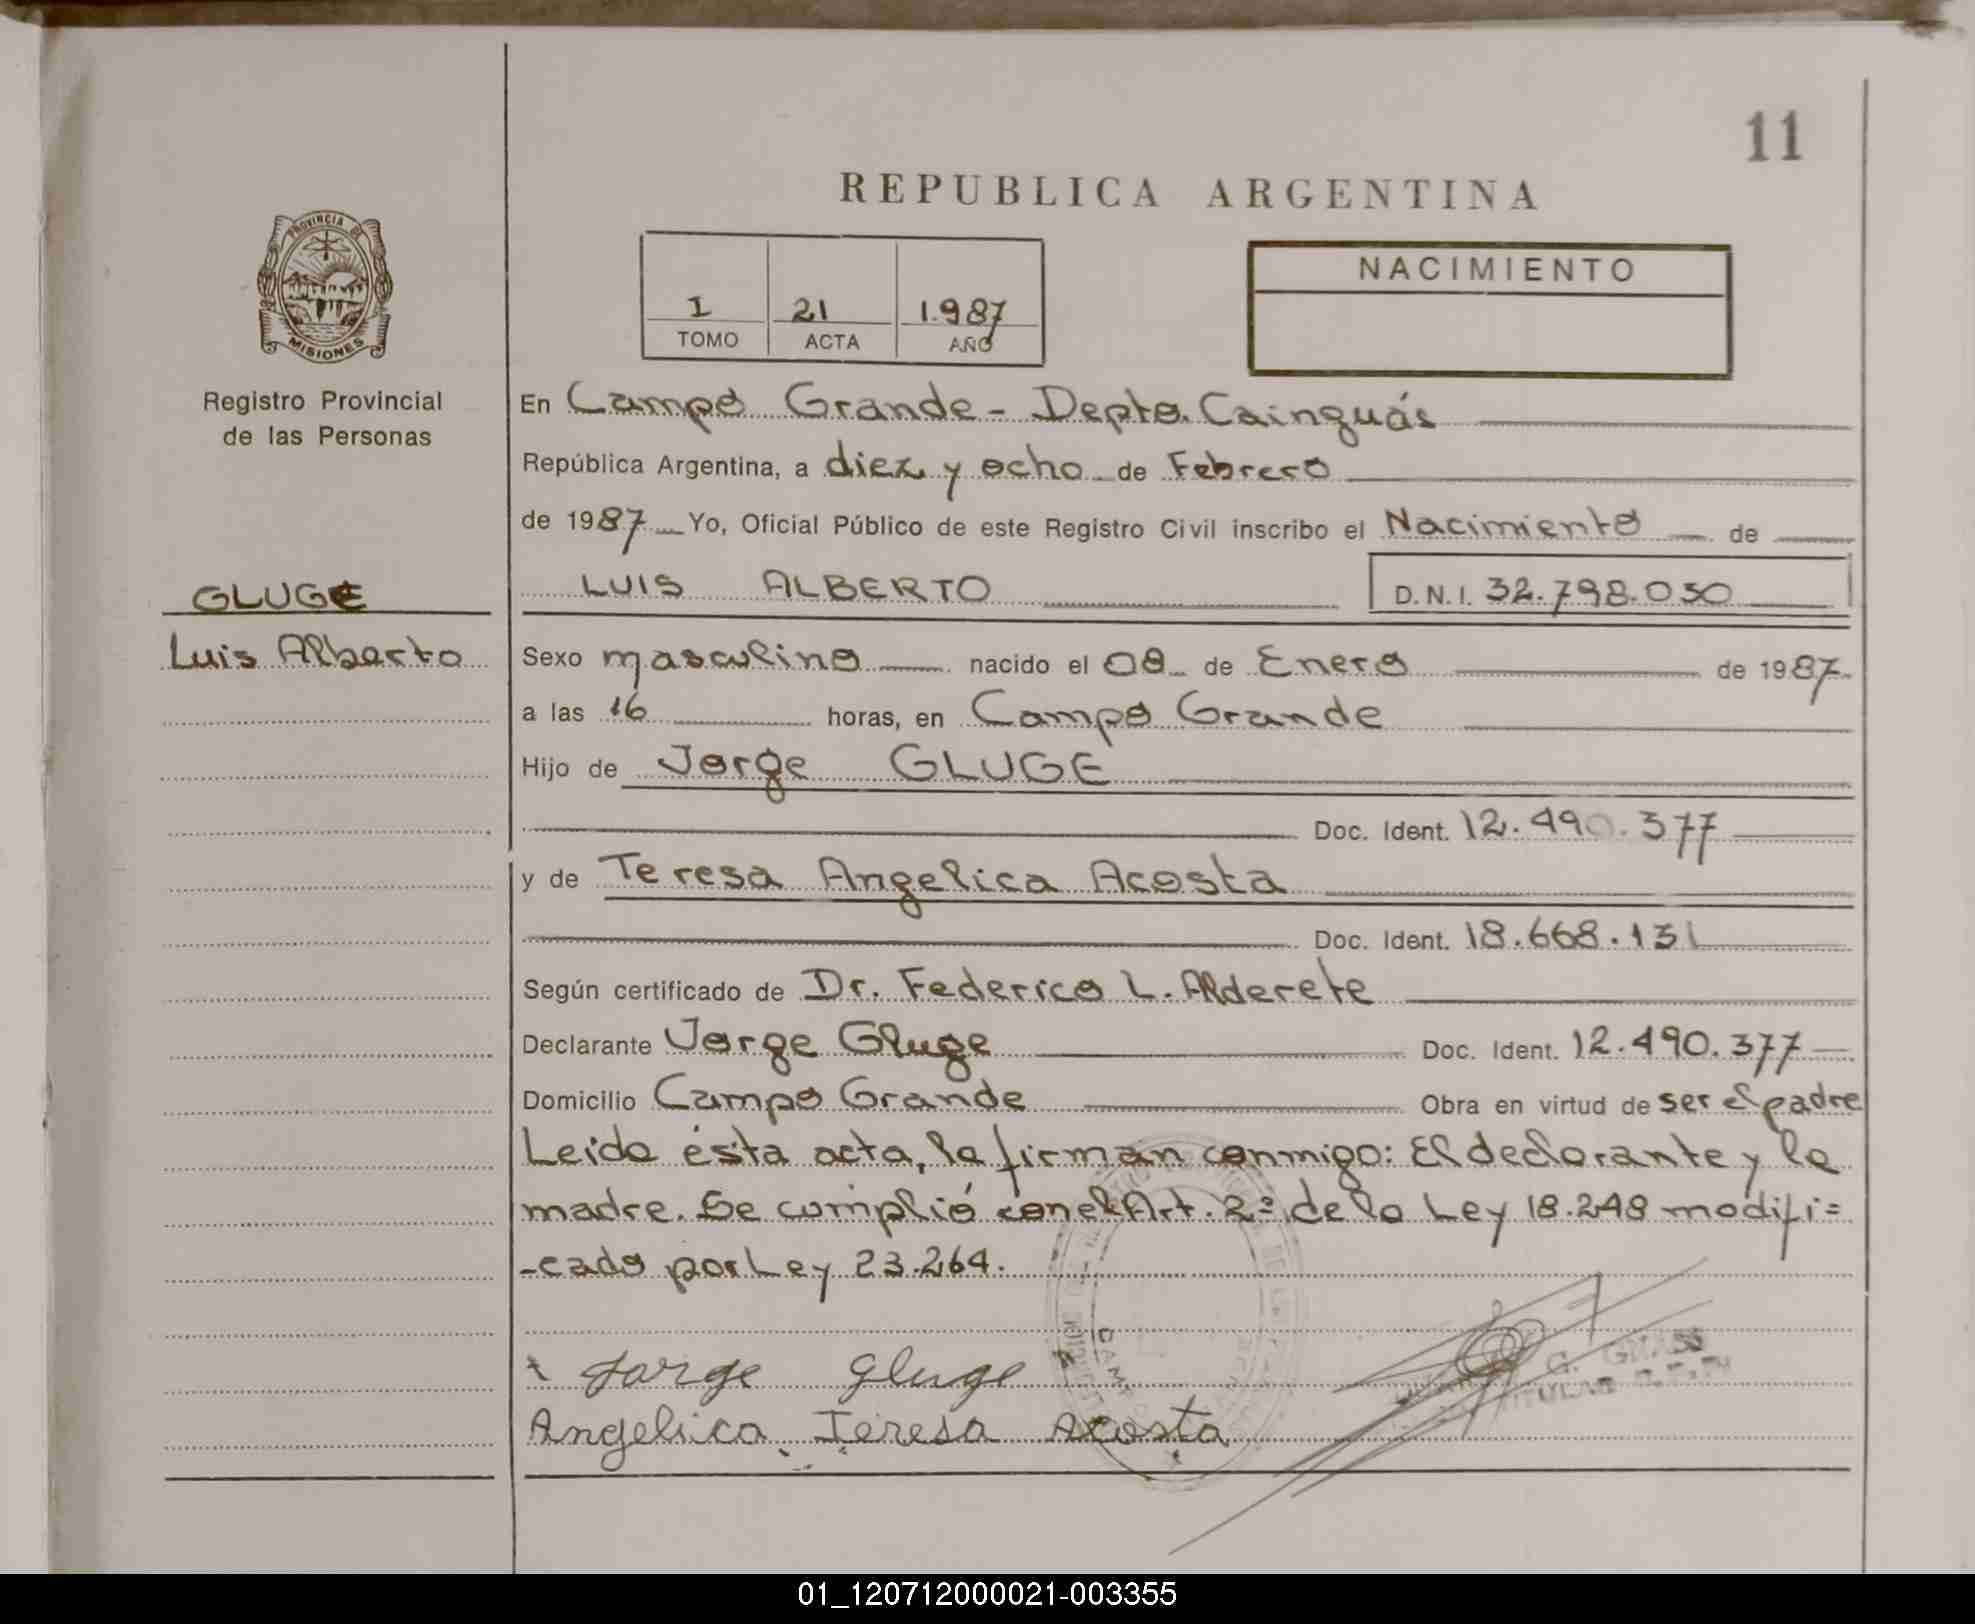 11
REPUBLICA ARGENTINA
PROVINCIA DE
MISIONES
Registro Provincial
de las Personas
I 21 1.987
TOMO ACTA AÑO
NACIMIENTO
En Campo Grande - Depto. Cainguás
República Argentina, a diez y ocho de Febrero
de 1987 Yo, Oficial Público de este Registro Civil inscribo el Nacimiento de
GLUGE
Luis Alberto
LUIS ALBERTO D.N.I. 32.798.030
Sexo masculino nacido el 08 de Enero de 1987
a las 16 horas, en Campo Grande
Hijo de Jorge GLUGE
Doc. Ident. 12.490.377
y de Teresa Angelica Acosta
Doc. Ident. 18.668.131
Según certificado de Dr. Federico L. Alderete
Declarante Jorge Gluge Doc. Ident. 12.490.377
Domicilio Campo Grande Obra en virtud de ser el padre
Leida ésta acta, la firman conmigo: El declarante y la
madre. Se cumplió con el Art. 2º de la Ley 18.248 modifi=
-cado por Ley 23.264.
Jorge Gluge
Angelica Teresa Acosta
01_120712000021-003355